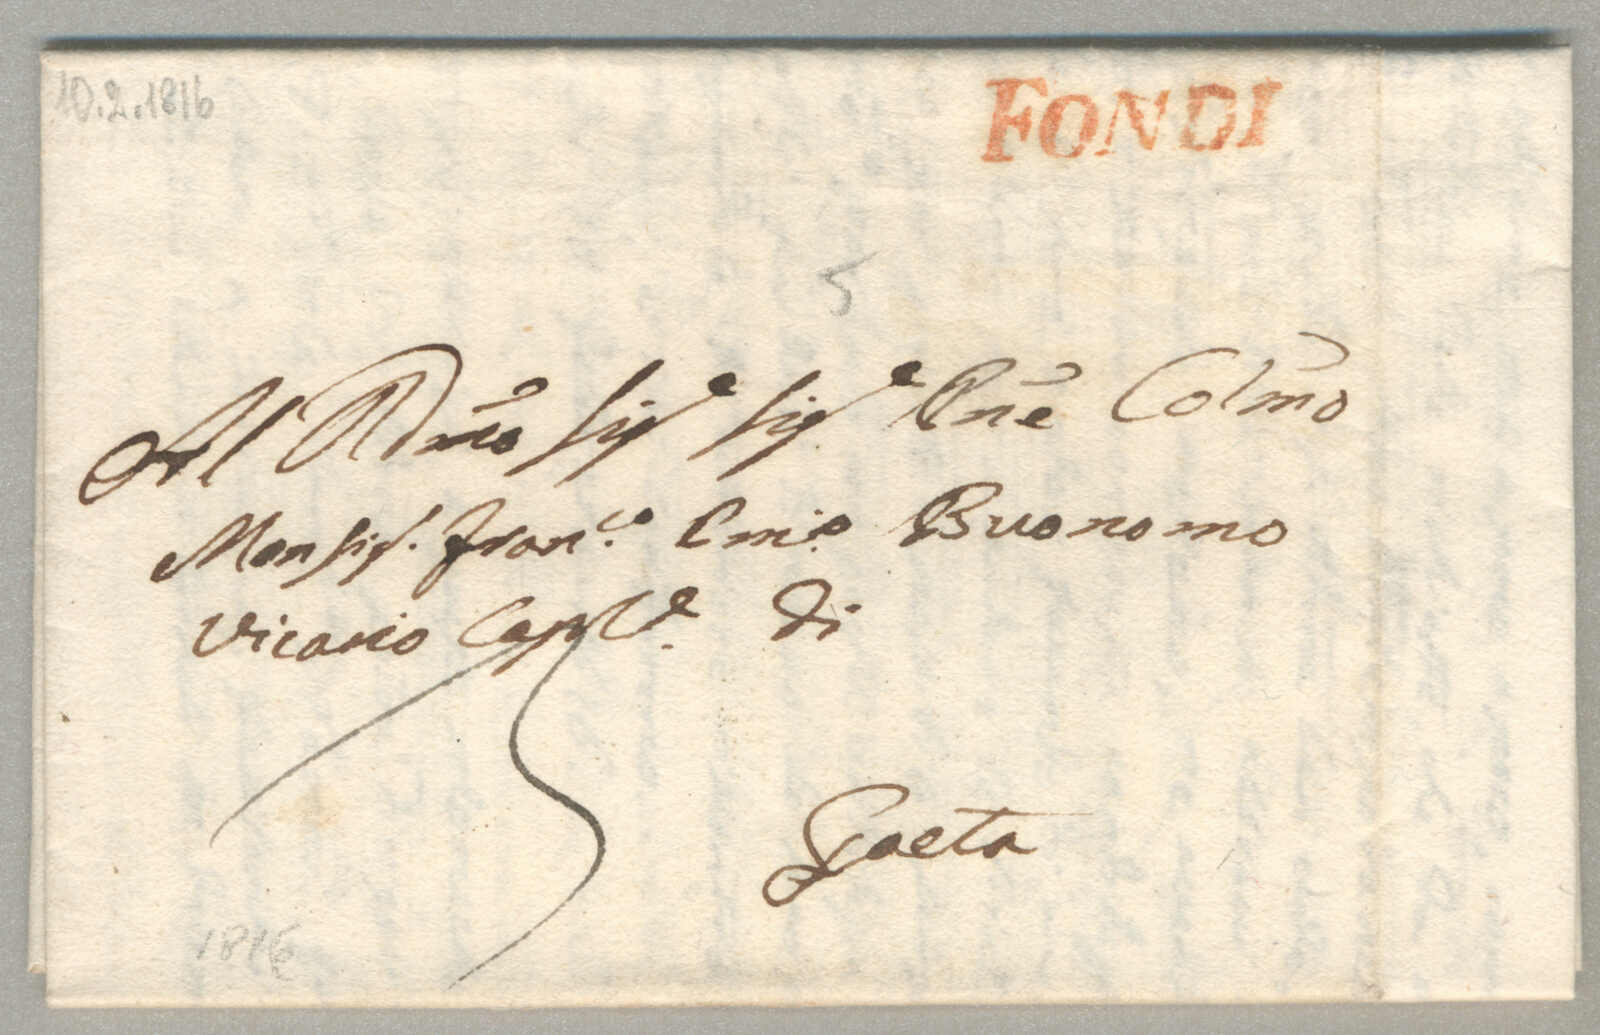 10.2.1816
FONDI
5
Al Rd̃mo Sigr.e Sigr.e Prõne Col̃mo
Monsigr. Franc.o Em.o Buonomo
Vicario Cap.le di
Gaeta
1816